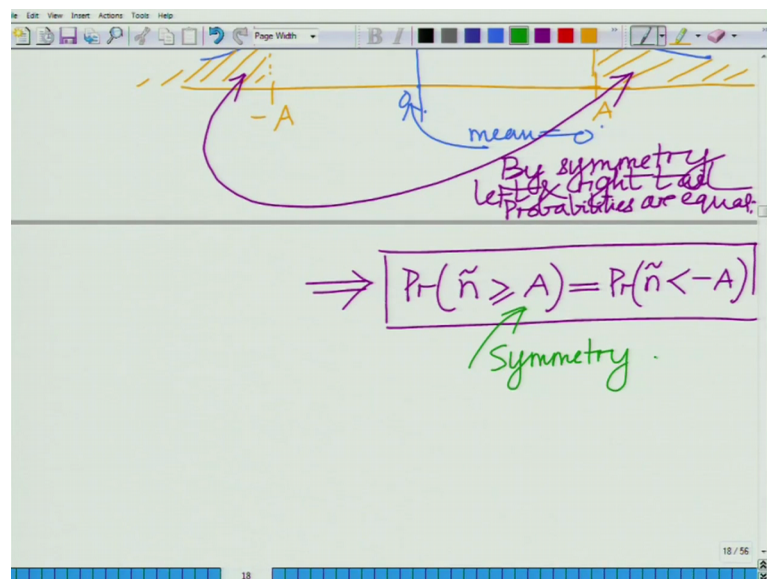 le Edit View Insert Actions Tools Help
Page Width B I
-A 0 A
mean = 0
By symmetry
left & right tail
Probabilities are equal.
⇒ Pr(ñ ≥ A) = Pr(ñ < -A)
Symmetry.
18 / 56
18